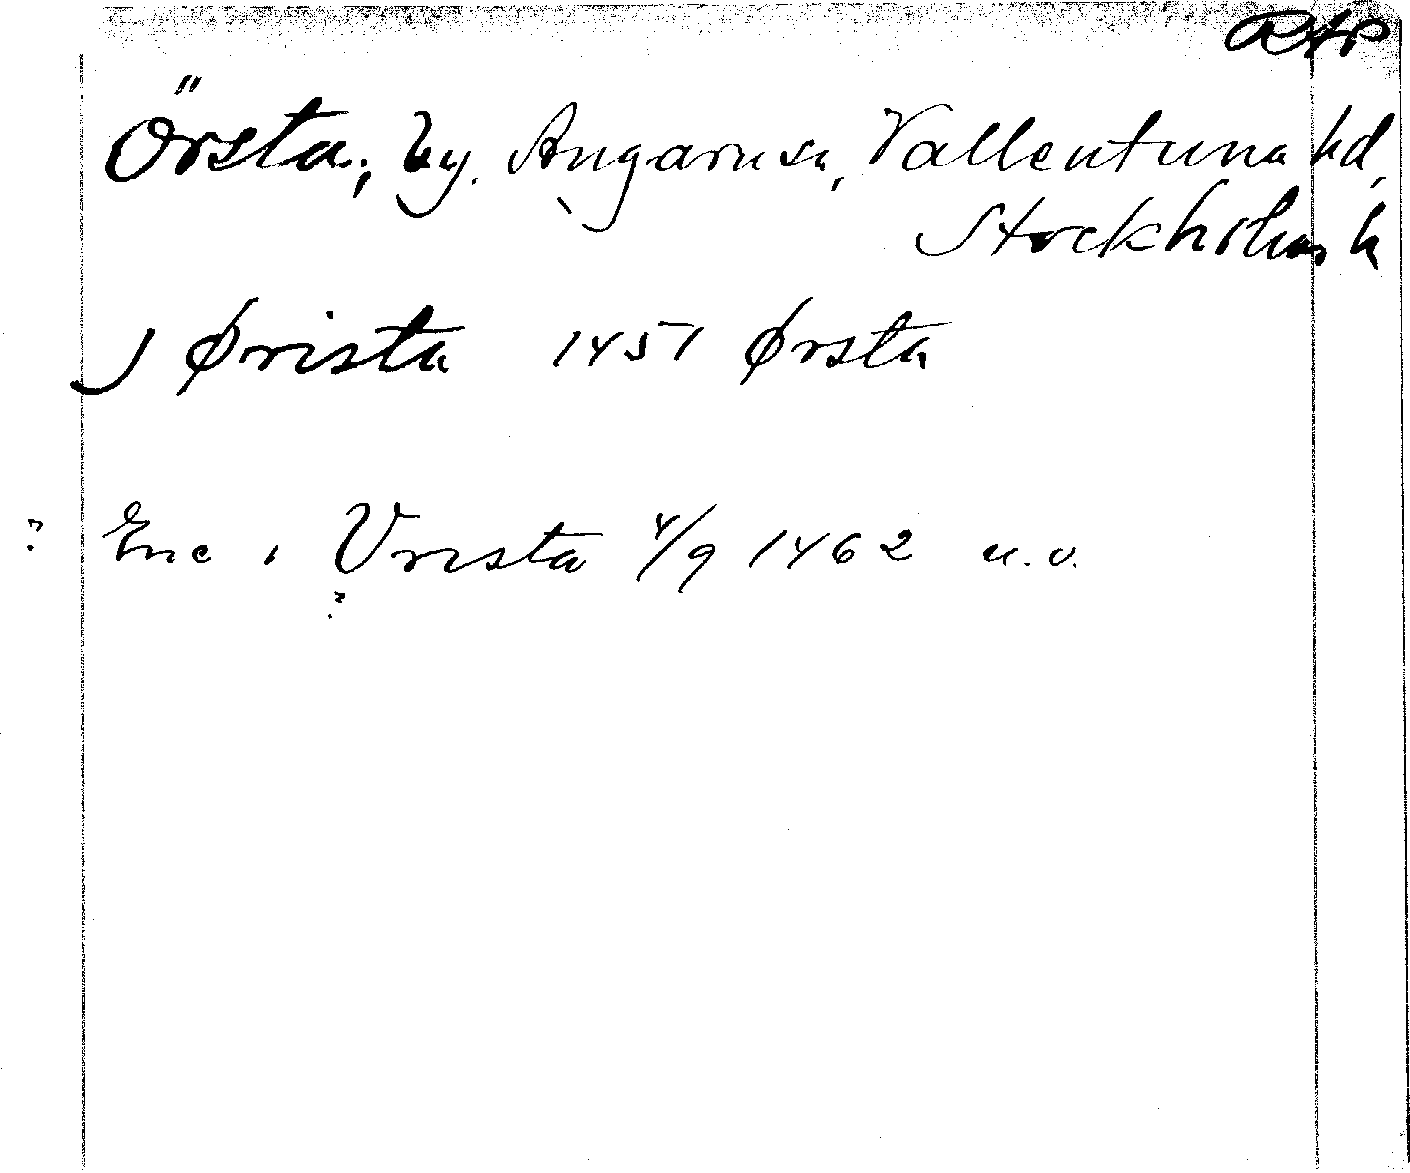 RAP
Örsta, by, Angarns sn, Vallentuna hd,
Stockholms l
J Ørista 1451 Ørsta
? Eric i Vrista 4/9 1462 u.o.
?